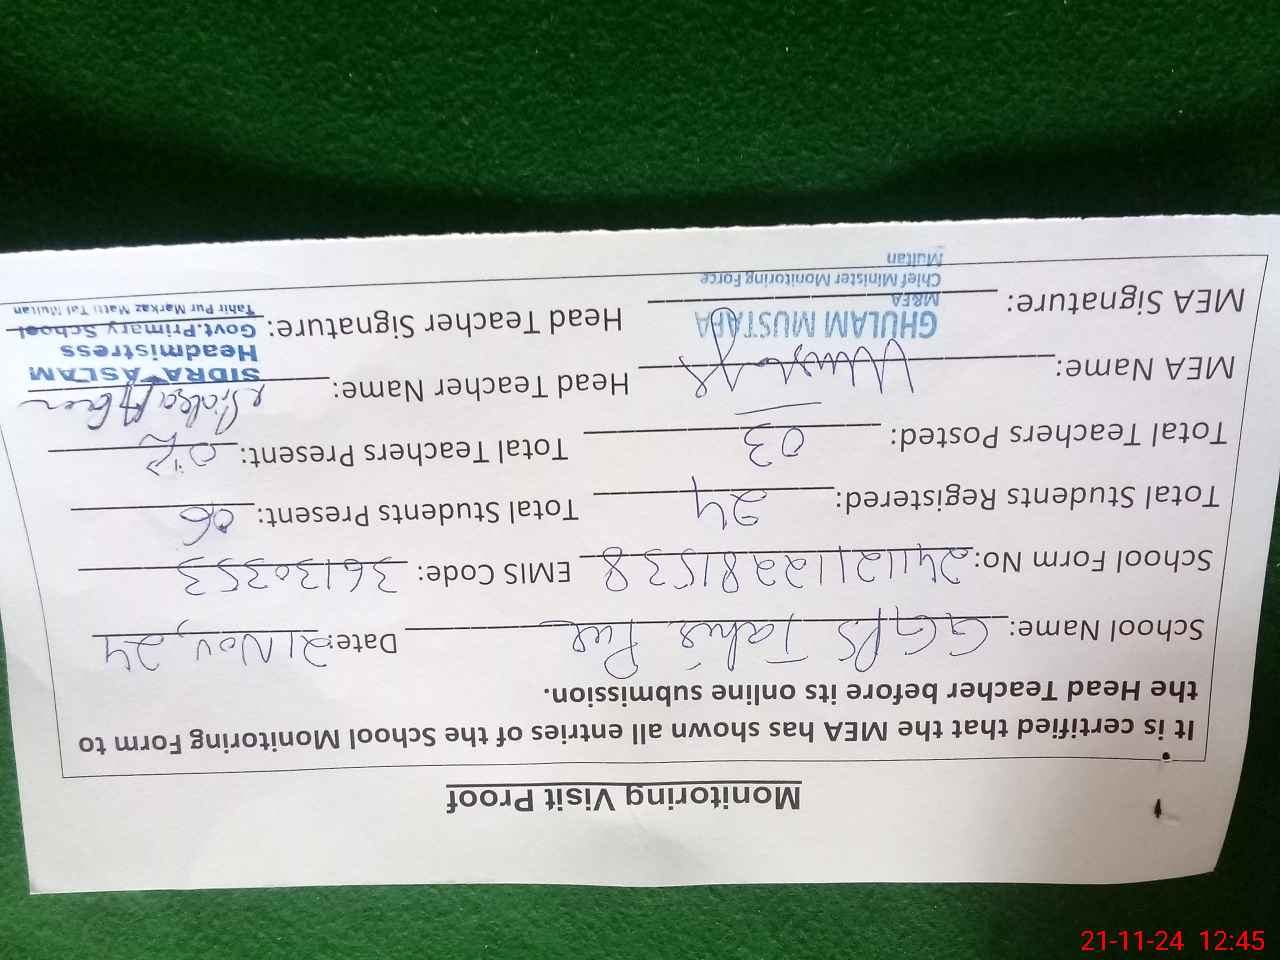 Monitoring Visit Proof
It is certified that the MEA has shown all entries of the School Monitoring Form to
the Head Teacher before its online submission.
School Name: GGPS Tahir Pur Date: 21 Nov, 24
School Form No: 24112112281538 EMIS Code: 36130353
Total Students Registered: 24 Total Students Present: 06
Total Teachers Posted: 03 Total Teachers Present: 02
MEA Name: Head Teacher Name: Sidra Aslam
GHULAM MUSTAFA SIDRA ASLAM
M&EA Headmistress
MEA Signature: Head Teacher Signature: Govt.Primary School
Chief Minister Monitoring Force Tahir Pur Markaz Matti Tal Multan
Multan
21-11-24 12:45